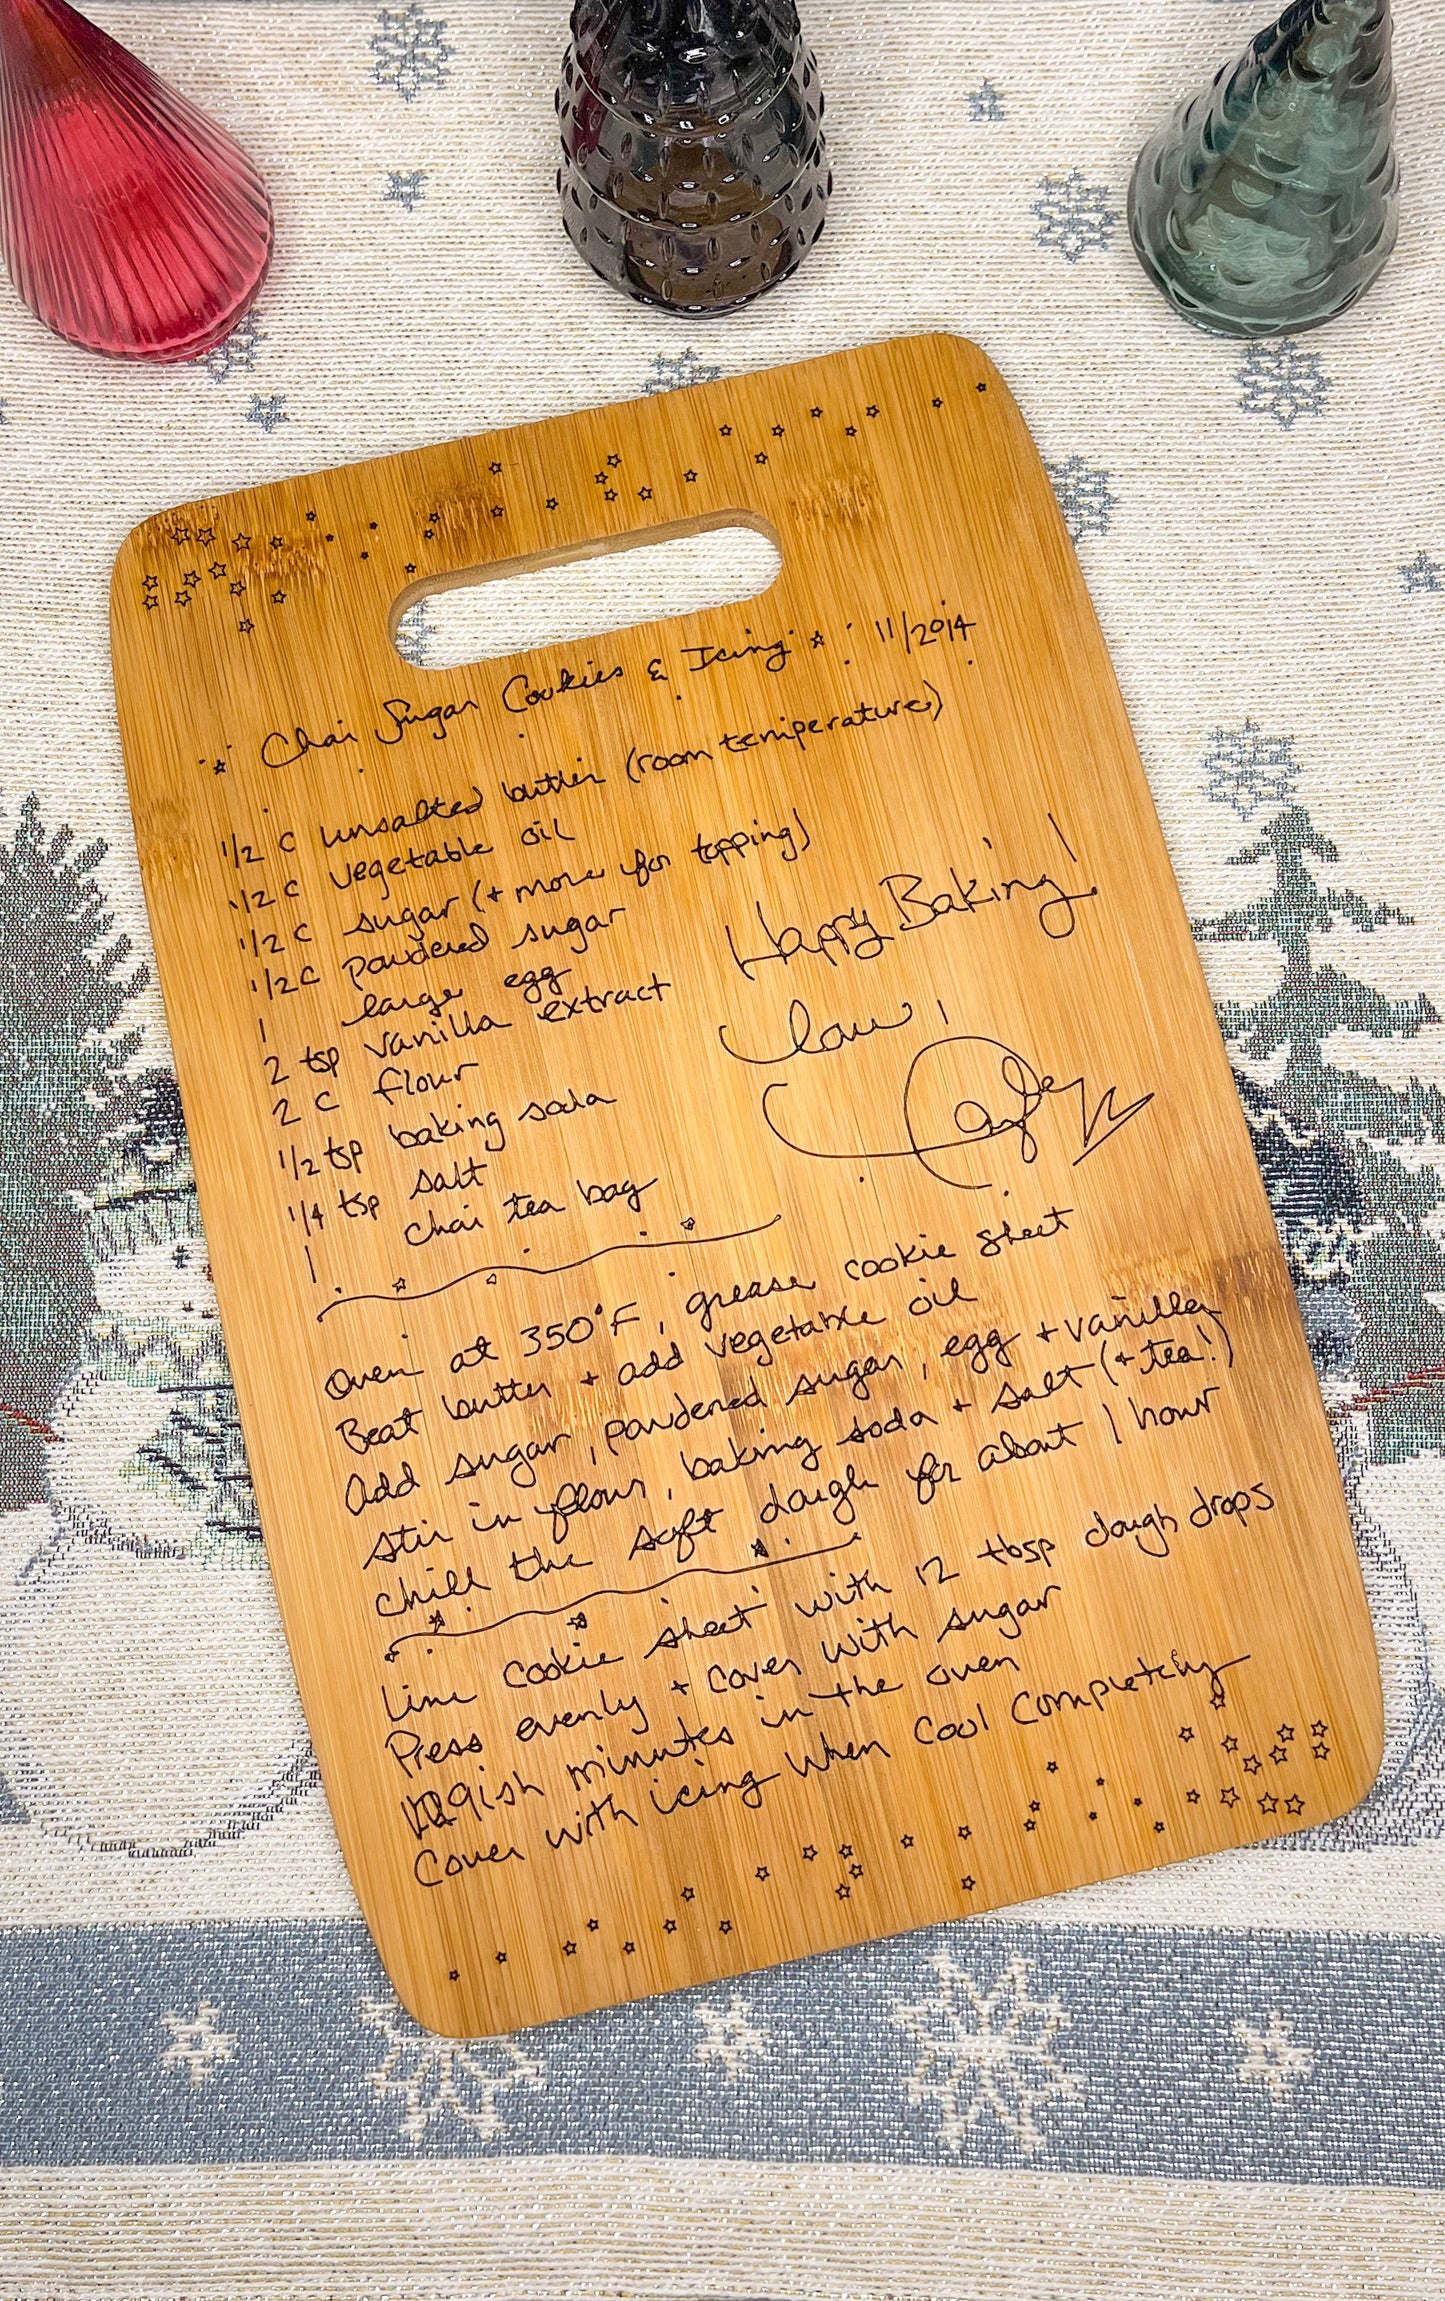 Chai Sugar Cookies & Icing 11/2014
1/2 C unsalted butter (room temperature)
1/2 C vegetable oil
1/2 C sugar (+ more for topping)
1/2 C powdered sugar
1 large egg
2 tsp vanilla extract
2 C flour
1/2 tsp baking soda
1/4 tsp salt
1 chai tea bag
Happy Baking!
Love!
Oven at 350°F, grease cookie sheet
Beat butter + add vegetable oil
Add sugar, powdered sugar, egg + vanilla
Stir in flour, baking soda + salt (+ tea!)
Chill the soft dough for about 1 hour
Line cookie sheet with 12 tbsp dough drops
Press evenly + cover with sugar
9ish minutes in the oven
Cover with icing when cool completely